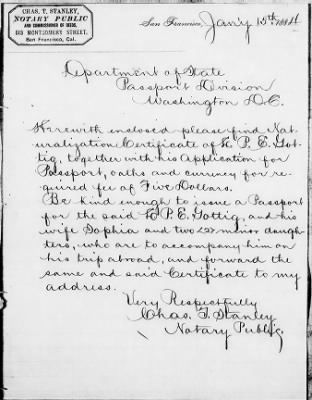 CHAS. T. STANLEY,
NOTARY PUBLIC
AND COMMISSIONER OF DEEDS,
MONTGOMERY STREET,
San Francisco, Cal.
San Francisco, Jan'y 15th 188
Department of State
Passport Division
Washington D.C.
Herewith enclosed please find Nat-
uralization Certificate of H. P. E. Got-
tig, together with his Application for
Passport, oaths and currency for re-
quired fee of Five Dollars.
Be kind enough to issue a Passport
for the said H P. E. Gottig, and his
wife Sophia and two minor daugh-
ters, who are to accompany him on
his trip abroad, and forward the
same and said Certificate to my
address.
Very Respectfully
Chas. T. Stanley
Notary Public,